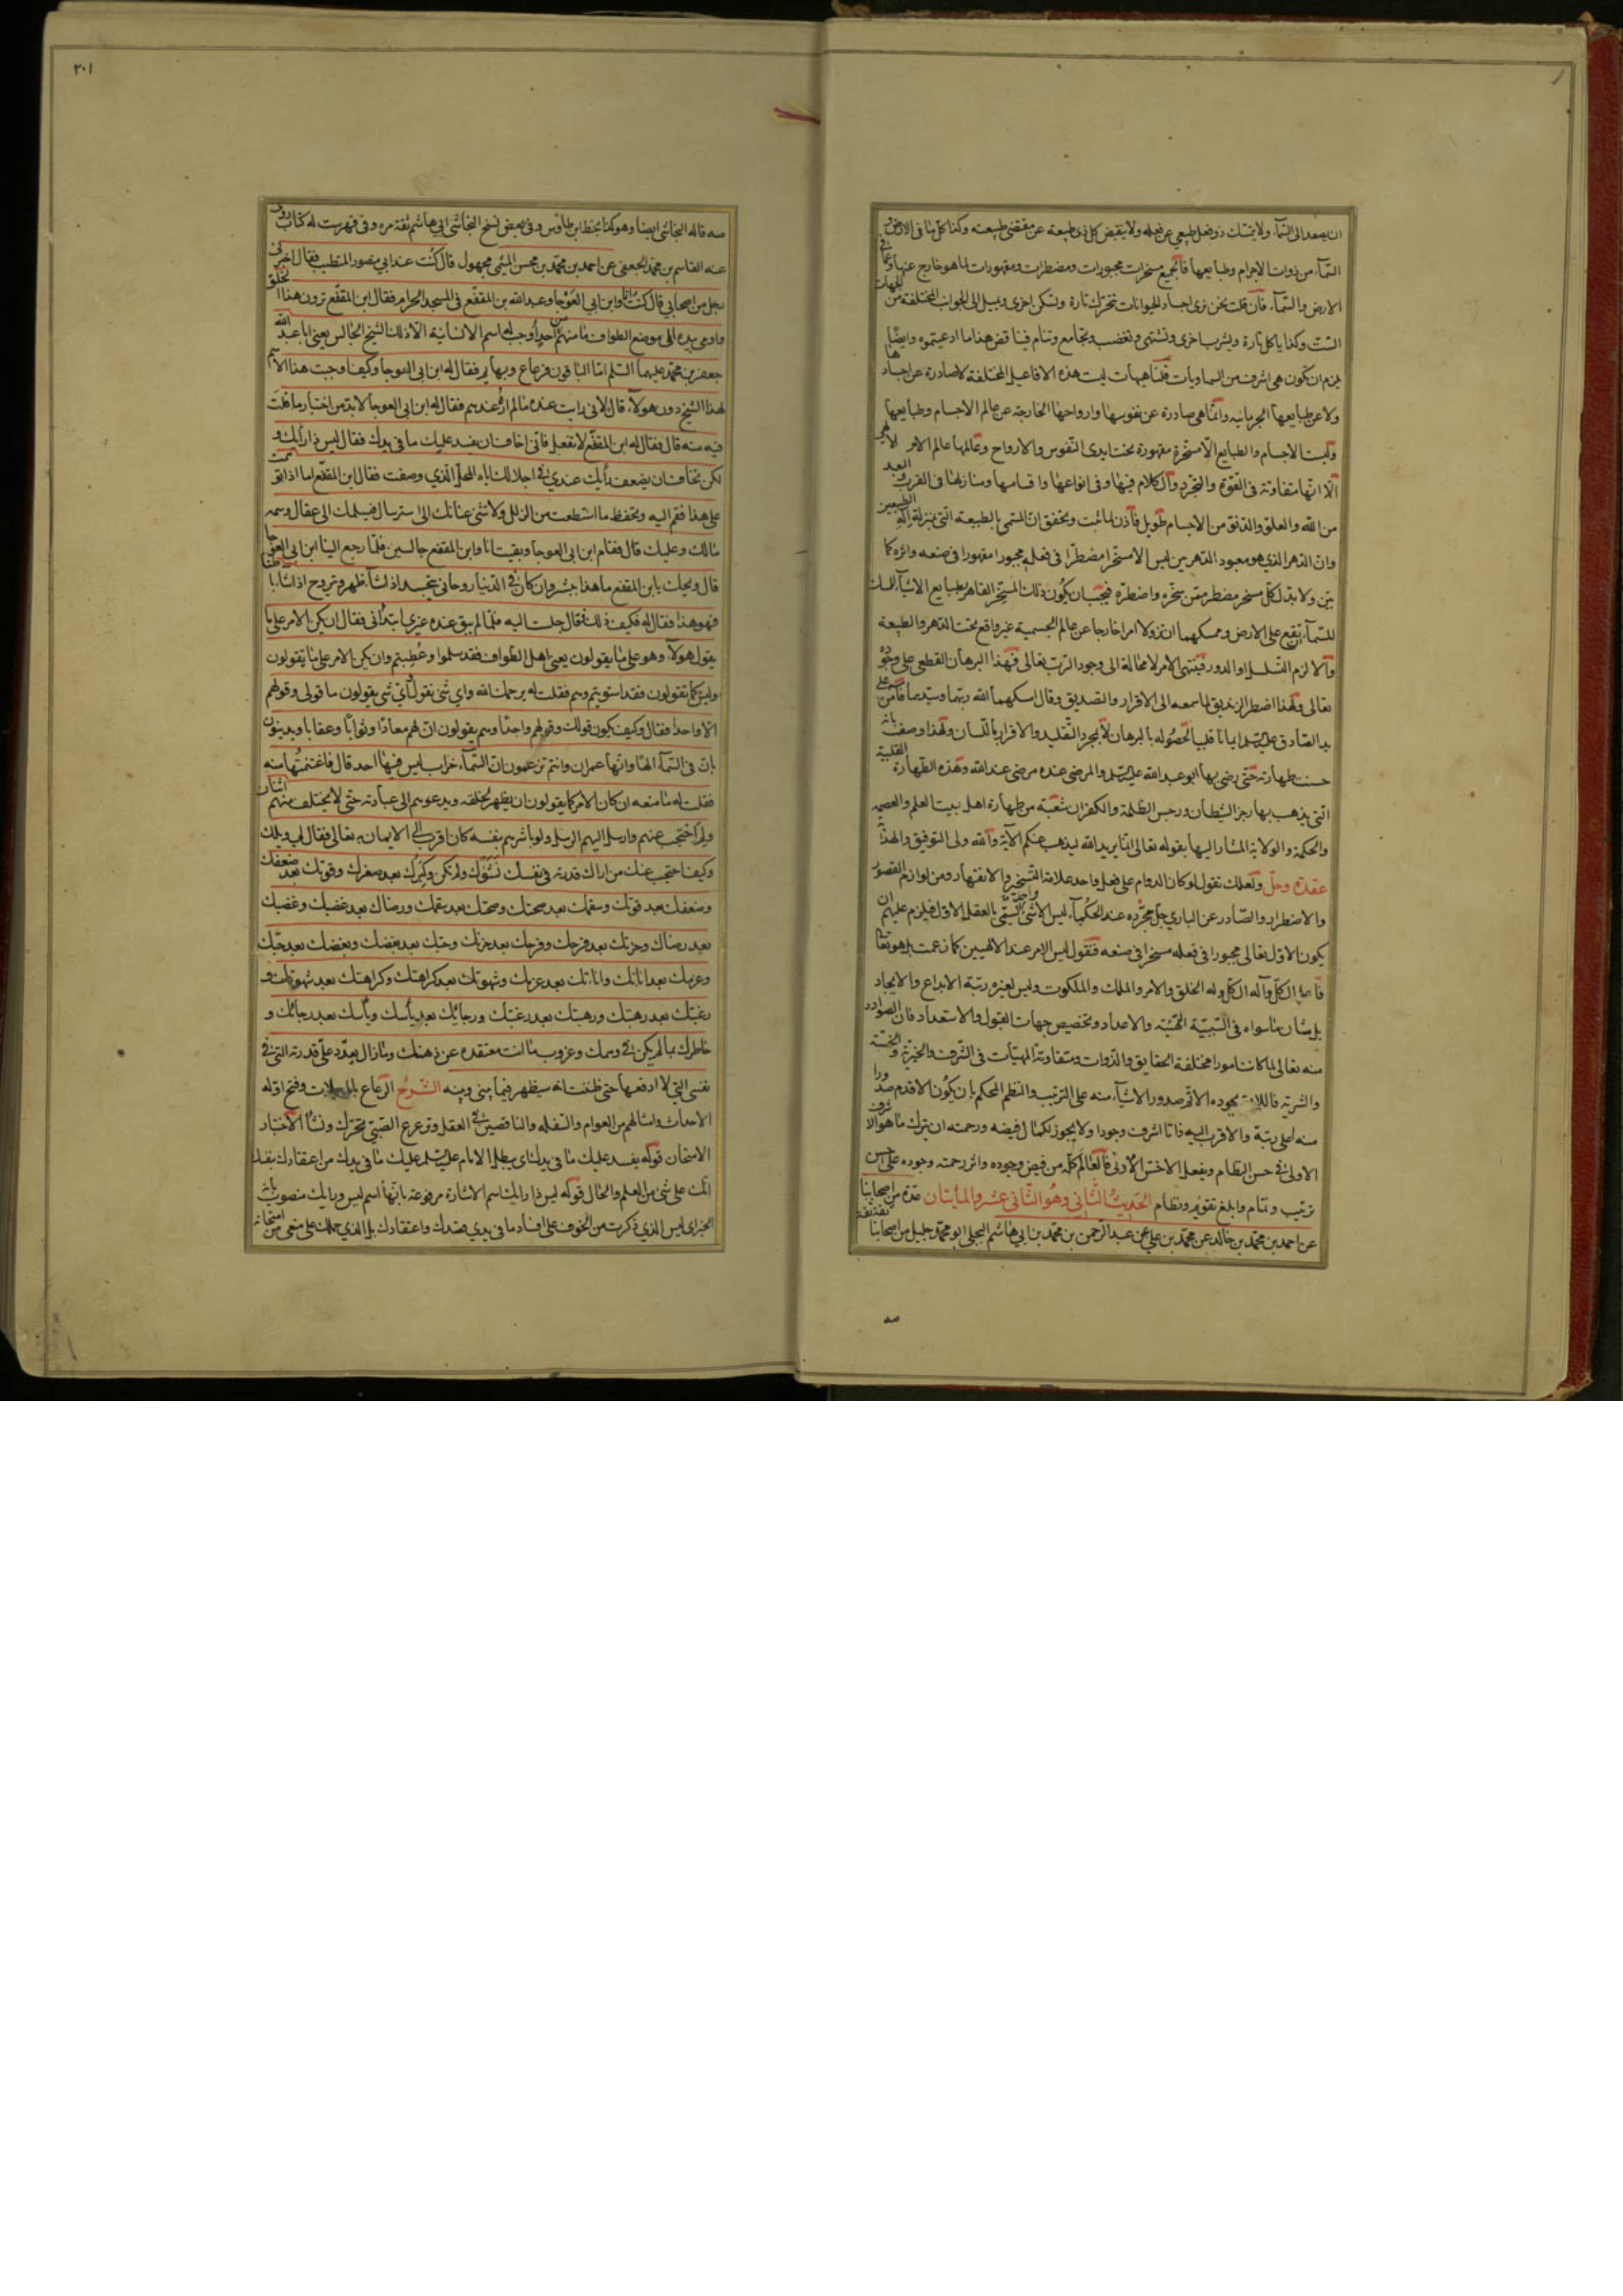 ان يصعد الى السمآء ولا يمسك ذو فعل طبيعى عن فعله ولا يقبض كل ذى طبيعة عن مقتضى طبيعته وكذا كل ما فى الارض و
السمآء من ذوات الاجرام وطبايعها فالجميع مسخرات مجبورات ومضطرات ومقهورات لما هو خارج عنها وعما فى
الارض والسمآء فان قلت نحن نرى اجساد الحيوانات تتحرك تارة وتسكن اخرى ويميل الى الجوانب المختلفة من الجهات
الست وكذا ياكل تارة ويشرب اخرى وتشتهى وتغضب وتجامع وتنام فيناقض هذا ما ادعيتموه وايضا
يلزم ان تكون هى اشرف من السماويات قلنا هيهات ليت هذه الافاعيل المختلفة لا صادرة عن اجسادها
ولا عن طبايعها الجرمانية وانما هى صادرة عن نفوسها وارواحها الخارجة عن عالم الاجسام وطبايعها
وليست الاجسام والطبايع الا مسخرة مقهورة تحت ايدى النفوس والارواح وعالمها عالم الامر الالهى
الا انها متفاوتة فى القوة والتجرد والكلام فيها وفى انواعها واقسامها ومنازلها فى القرب والبعد
من الله والعلو والدنو من الاجسام طويل فاذن لما ثبت وتحقق ان المسمى بالطبيعة التى بمنزلة اله الطبيعين
وان الدهر الذى هو معبود الدهرين ليس الا مسخرا مضطرا فى فعله مجبورا مقهورا فى صنعه واثره كما
بين ولا بد لكل مسخر مضطر ممن سخره واضطره فيجب ان يكون ذلك المسخر القاهر لطبايع الاشيآء الممسك
للسمآء ان يقع على الارض وممسكهما ان تزولا امرا خارجا عن عالم الجسمية غير واقع تحت الدهر والطبيعة
والا لزم التسلسل او الدور فينتهى الامر لا محالة الى وجود الرب تعالى فهذا البرهان القطعى على وجوده
تعالى ولهذا اضطر الزنديق لما سمعه الى الاقرار والتصديق وقال امسكهما الله ربهما وسيدهما فآمن على
يد الصادق عليه السلم ايمانا قلبيا لحصوله بالبرهان لا بمجرد التقليد والاقرار باللسان ولهذا وصف بانه
حسنت طهارته حتى رضى بها ابو عبد الله عليه السلم والمرضى عنده مرضى عند الله وهذه الطهارة القلبية
التى يذهب بها رجز الشيطان ورجس الظلمة والكفران شعبة من طهارة اهل بيت العلم والعصمة
والحكمة والولاية المشار اليها بقوله تعالى انما يريد الله ليذهب عنكم الآية والله ولى التوفيق والهداية
عقدة وحل ولعلك تقول لو كان الدوام على فعل واحد علامة التسخير والانقهار ومن لوازم القصور
والاضطرار والصادر عن البارى جل مجده عند الحكمآء ليس الا شئ واحد يسمى بالعقل الاول فيلزم عليهم ان
يكون الاول تعالى مجبورا فى فعله مسخرا فى صنعه فنقول ليس الامر عند الالهيين كما زعمت بل هو تعالى
فاعل الكل واله الكل وله الخلق والامر والملك والملكوت وليس لغيره رتبة الابداع والايجاد
بل شان ما سواه فى السببية التهيئة والاعداد وتخصيص جهات القبول والاستعداد فان الصوادر
منه تعالى لما كانت امورا مختلفة الحقايق والذوات ومتفاوتة الهيئات فى الشرف والخيرية والخسة
والشرية فاللائق بجوده الاتم صدور الاشيآء منه على الترتيب والنظم المحكم بان يكون الاقدم صدورا
منه اعلى رتبة والاقرب اليه ذاتا اشرف وجودا ولا يجوز لكمال فيضه ورحمته ان يترك ما هو الاشرف
الاولى فى حسن النظام ويفعل الاخس الادنى فالعالم كله من فيض وجوده واثر رحمته وجوده على احسن
ترتيب وتمام وابلغ تقويم ونظام الحديث الثانى وهو الثانى عشر والمأيتان عدة من اصحابنا
عن احمد بن محمد بن خالد عن محمد بن على عن عبد الرحمن بن محمد بن ابى هاشم البجلى ابو محمد جليل من اصحابنا ثقة ثقة
صه
٢٠١
صه قاله النجاشى ايضا وهو كذا بخط ابن طاوس وفى بعض نسخ النجاشى ابى هاشم ثقة مره وفى فهرست له كتاب روى
عنه القاسم بن محمد الجعفى عن احمد بن محمد بن محسن الميثمى مجهول قال كنت عند ابى منصور المتطبب فقال اخبرنى
رجل من اصحابى قال كنت انا وابن ابى العوجا وعبد الله بن المقفع فى المسجد الحرام فقال ابن المقفع ترون هذا الخلق
واومى بيده الى موضع الطواف ما منهم احد اوجب له اسم الانسانية الا ذلك الشيخ الجالس يعنى ابا عبد الله
جعفر بن محمد عليهما السلم اما الباقون فرعاع وبهايم فقال له ابن ابى العوجا وكيف اوجبت هذا الاسم
لهذا الشيخ دون هولآء قال لانى رايت عنده ما لم اره عندهم فقال له ابن ابى العوجا لا بد من اختبار ما قلت
فيه منه قال فقال له ابن المقفع لا تفعل فانى اخاف ان يفسد عليك ما فى يدك فقال ليس ذا رايك و
لكن تخاف ان يضعف رأيك عندى فى احلالك اياه المحل الذى وصفت فقال ابن المقفع اما اذا توهمت
على هذا فقم اليه وتحفظ ما استطعت من الزلل ولا تثنى عنانك الى استرسال فيسلمك الى عقال وسمه
مالك وعليك قال فقام ابن ابى العوجا وبقيت انا وابن المقفع جالسين فلما رجع الينا ابن ابى العوجا
قال ويلك يا بن المقفع ما هذا ببشر وان كان فى الدنيا روحانى يتجسد اذا شآء ظاهرا ويتروح اذا شآء باطنا
فهو هذا فقال له فكيف ذلك فقال جلست اليه فلما لم يبق عنده غيرى ابتدأنى فقال ان يكن الامر على ما
يقول هولآء وهو على ما يقولون يعنى اهل الطواف فقد سلموا وعطبتم وان يكن الامر على ما تقولون
وليس كما تقولون فقد استويتم وهم فقلت له يرحمك الله واى شئ نقول واى شئ يقولون ما قولى وقولهم
الا واحدا فقال وكيف يكون قولك وقولهم واحدا وهم يقولون ان لهم معادا وثوابا وعقابا ويدينون
بان فى السمآء الها وانها عمران وانتم تزعمون ان السمآء خراب ليس فيها احد قال فاغتنمتها منه
فقلت له ما منعه ان كان الامر كما يقولون ان يظهر لخلقه ويدعوهم الى عبادته حتى لا يختلف منهم اثنان
ولم احتجب عنهم وارسل اليهم الرسل ولو باشرهم بنفسه كان اقرب الى الايمان به تعالى فقال لى ويلك
وكيف احتجب عنك من اراك قدرته فى نفسك نشوك ولم تكن وكبرك بعد صغرك وقوتك بعد ضعفك
وضعفك بعد قوتك وسقمك بعد صحتك وصحتك بعد سقمك ورضاك بعد غضبك وغضبك
بعد رضاك وحزنك بعد فرحك وفرحك بعد حزنك وحبك بعد بغضك وبغضك بعد حبك
وعزمك بعد اناتك واناتك بعد عزمك وشهوتك بعد كراهتك وكراهتك بعد شهوتك و
رغبتك بعد رهبتك ورهبتك بعد رغبتك ورجائك بعد يأسك ويأسك بعد رجائك و
خاطرك بما لم يكن فى وهمك وعزوب ما انت معتقده عن ذهنك وما زال يعدد على قدرته التى فى
نفسى التى لا ادفعها حتى ظننت انه سيظهر فيما بينى وبينه الشرح الرعاع بالمهملات وفتح اوله
الاحداث وامثالهم من العوام والسفله والناقصين فى العقل وترعرع الصبى تحرك ونشأ الاختبار
الامتحان قوله يفسد عليك ما فى يدك اى يبطل الامام عليه السلم عليك ما فى يدك من اعتقادك بنفسك
انك على شئ من العلم والحال قوله ليس ذا رايك اسم الاشارة مرفوعة بانها اسم ليس ورايك منصوب بانه
الخبر اى ليس الذى ذكرت من الخوف على افساد ما فى يدى قصدك واعتقادك بل الذى حملك على منعى من امتحانه